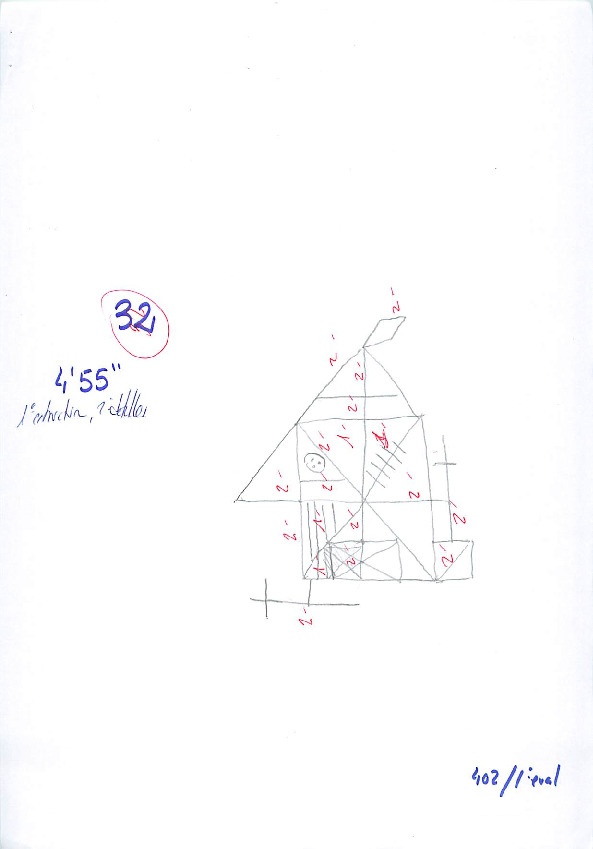 32
4'55"
1º estructura, 2º detalles
2-
2-
2-
2-
1-
2-
2-
2-
2-
2-
2-
1-
2-
2-
1
2
2'
2-
402/1ªeval